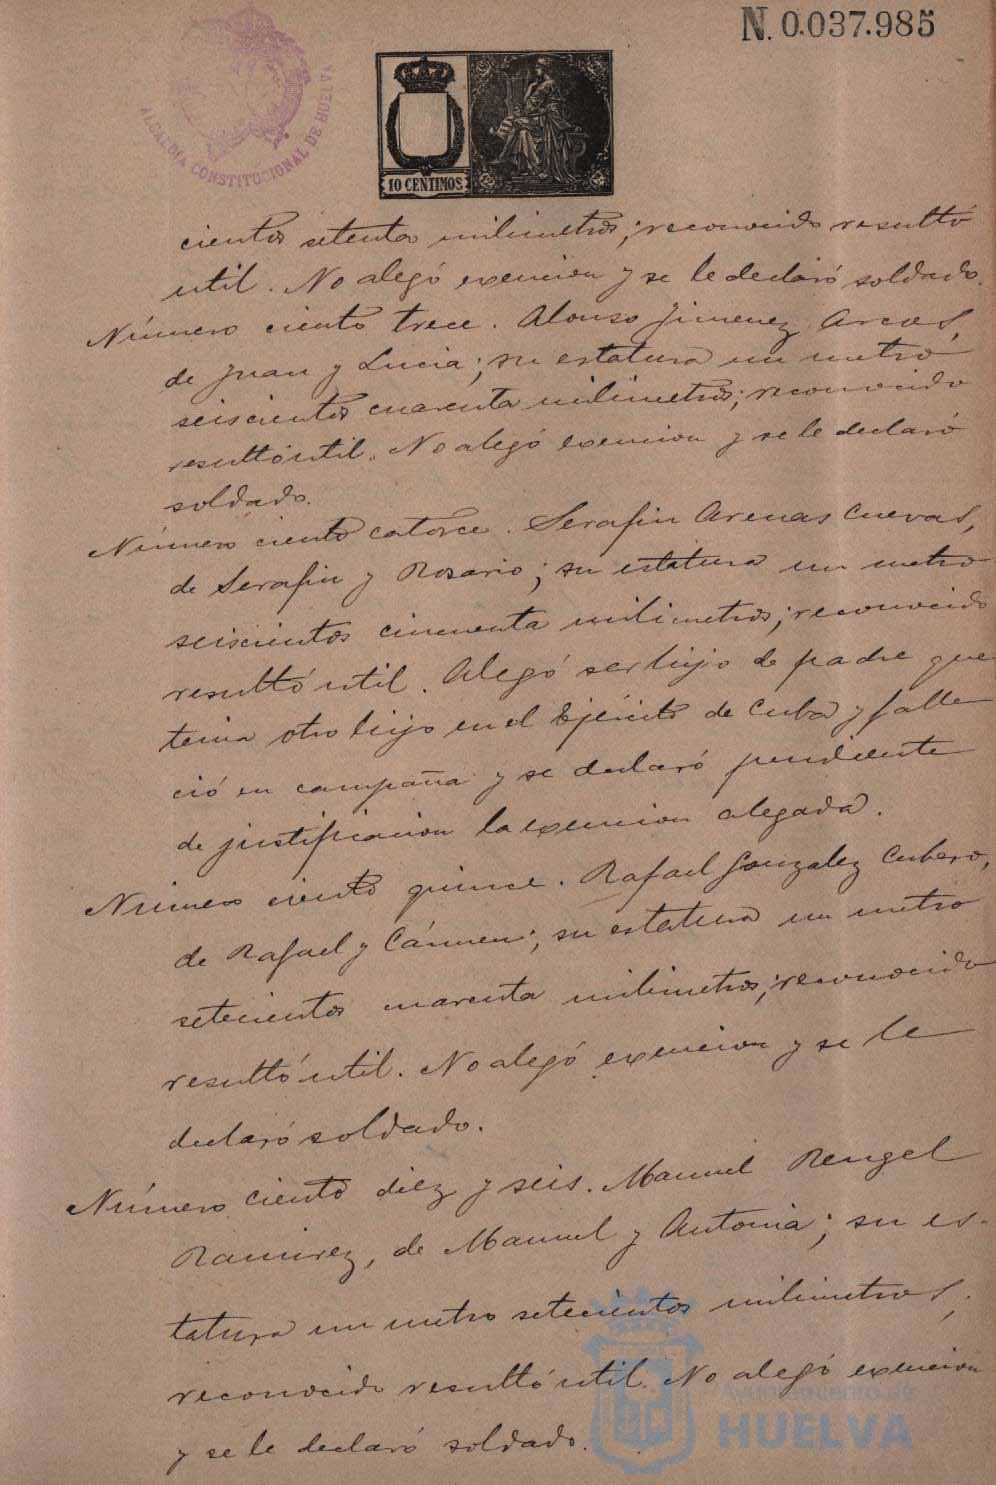 N. 0.037.985
ALCALDÍA CONSTITUCIONAL DE HUELVA
10 CENTIMOS
cientos setenta milimetros; reconocido resultó
util. No alegó exencion y se le declaró soldado.
Número ciento trece. Alonso Jimenez Arcos,
de Juan y Lucia; su estatura un metro
seiscientos cuarenta milimetros; reconocido
resultó util. No alegó exencion y se le declaró
soldado.
Número ciento catorce. Serafin Arenas Cuevas,
de Serafin y Rosario; su estatura un metro
seiscientos cincuenta milimetros; reconocido
resultó util. Alegó ser hijo de padre que
tenia otro hijo en el Ejército de Cuba y falle
ció en campaña y se declaró pendiente
de justificacion la exencion alegada.
Número ciento quince. Rafael Gonzalez Cubero,
de Rafael y Cármen; su estatura un metro
setecientos cuarenta milimetros; reconocido
resultó util. No alegó exencion y se le
declaró soldado.
Número ciento diez y seis. Manuel Rengel
Ramirez, de Manuel y Antonia; su es-
tatura un metro setecientos milimetros;
reconocido resultó util. No alegó exencion
y se le declaró soldado.
Ayuntamiento de
HUELVA